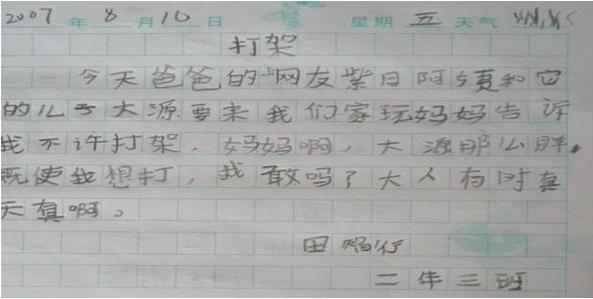 2007年8月10日 星期五 天气
打架
今天爸爸的网友紫日阿姨和它
的儿子大源要来我们家玩妈妈告诉
我不许打架，妈妈啊，大源那么胖，
既使我想打，我敢吗？大人有时真
天真啊。
田
二年三班